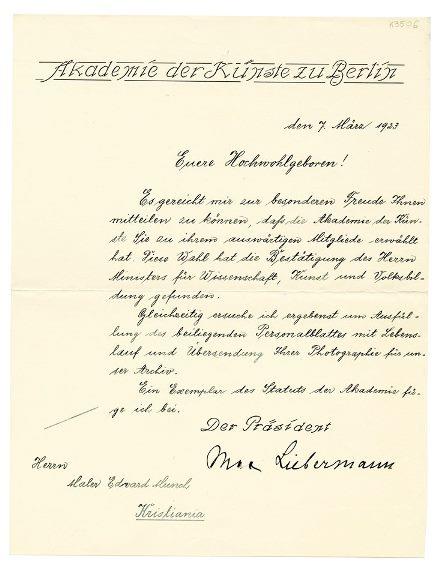 K3506
Akademie der Künste zu Berlin
den 7. März 1923
Euere Hochwohlgeboren!
Es gereicht mir zur besonderen Freude Ihnen
mitteilen zu können, daß die Akademie der Kün-
ste Sie zu ihrem auswärtigen Mitgliede erwählt
hat. Diese Wahl hat die Bestätigung des Herrn
Ministers für Wissenschaft, Kunst und Volksbil-
dung gefunden.
Gleichzeitig ersuche ich ergebenst um Ausfül-
lung des beiliegenden Personalblattes mit Lebens-
lauf und Übersendung Ihrer Photographie für un-
ser Archiv.
Ein Exemplar des Statuts der Akademie fü-
ge ich bei.
Der Präsident
Max Liebermann
Herrn
Maler Edvard Munch
Kristiania